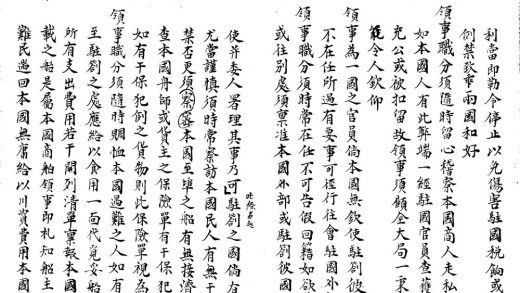 利當即勒令停止以免傷害駐國税餉或
例禁於事兩國和好
領事職分須隨時留心稽察本國商人走私
如本國人有此弊端一經駐國官員查獲
充公或被扣留故領事須顧全大局一秉
能令人欽仰
領事為一國之官員倘本國無欽使駐劄彼
不在任所遇有要事可徑行往會駐國外
領事職分須時常在任不可告假回籍如欲
或往別處須稟准本國外部或駐劄彼國
此條另起
使并委人署理其事乃可駐劄之國倘有
尤當謹慎須時常察訪本國民人有無干
禁否更須察審本國至埠之船有無接濟
查本國舟師或貨主之保險單有干保犯
如有干保犯例之貨物則此保險單視為
領事職分須隨時賙恤本國遇難之人如有
至駐劄之處應給以食用一面代覓妥船
所有支出費用若干開列清單稟報本國
載之船是屬本國商船領事即札知船主
難民過回本國無庸給以川資費用本國